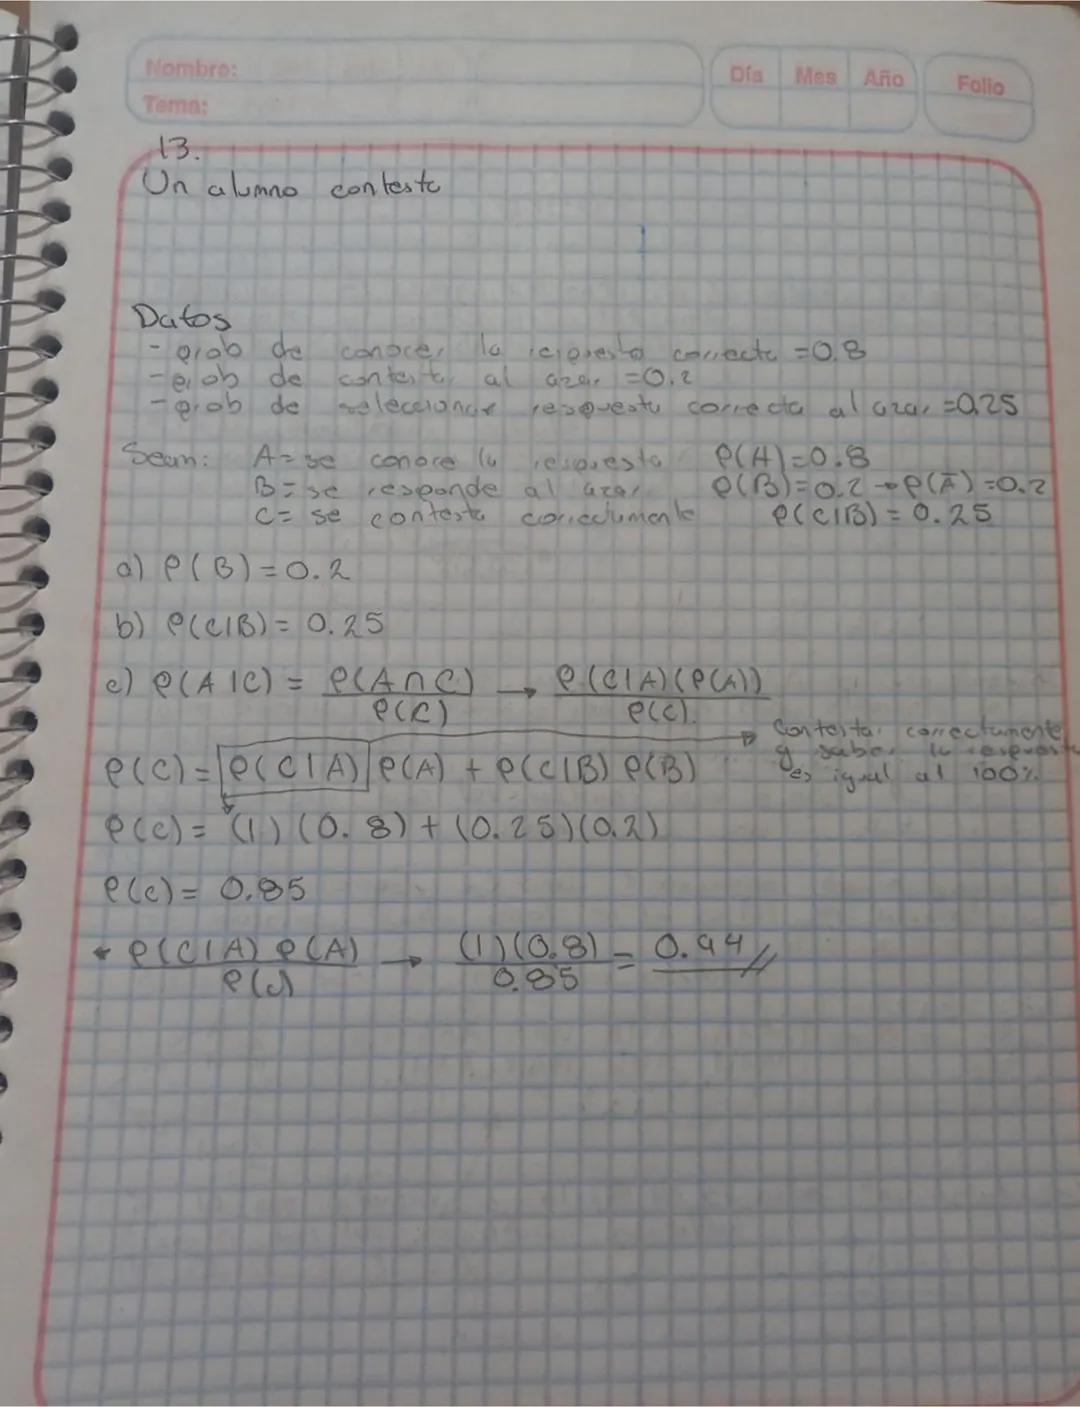 Nombre:
Tema:
Día Mes Año Folio
13.
Un alumno contesta
Datos
- prob de conocer la respuesta correcta = 0.8
- prob de contestar al azar = 0.2
- prob de seleccionar respuesta correcta al azar = 0.25
Sean: A = se conoce la respuesta P(A) = 0.8
B = se responde al azar P(B) = 0.2 → P(Ā) = 0.2
C = se contesta correctamente P(C|B) = 0.25
a) P(B) = 0.2
b) P(C|B) = 0.25
c) P(A|C) = P(A∩C) / P(C) → P(C|A)(P(A)) / P(C).
P(C) = P(C|A) P(A) + P(C|B) P(B)
Contestar correctamente
y saber la respuesta
es igual al 100%
P(C) = (1)(0.8) + (0.25)(0.2)
P(C) = 0.85
* P(C|A) P(A) / P(C) → (1)(0.8) / 0.85 = 0.94 //